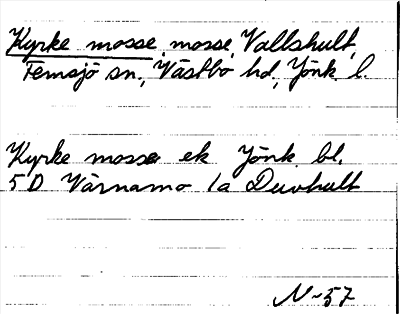 Kyrke mosse, mosse, Vallshult,
Femsjö sn, Västbo hd, Jönk. l.
Kyrke mosse ek Jönk. bl.
5D Värnamo 1a Duvhult
N-57